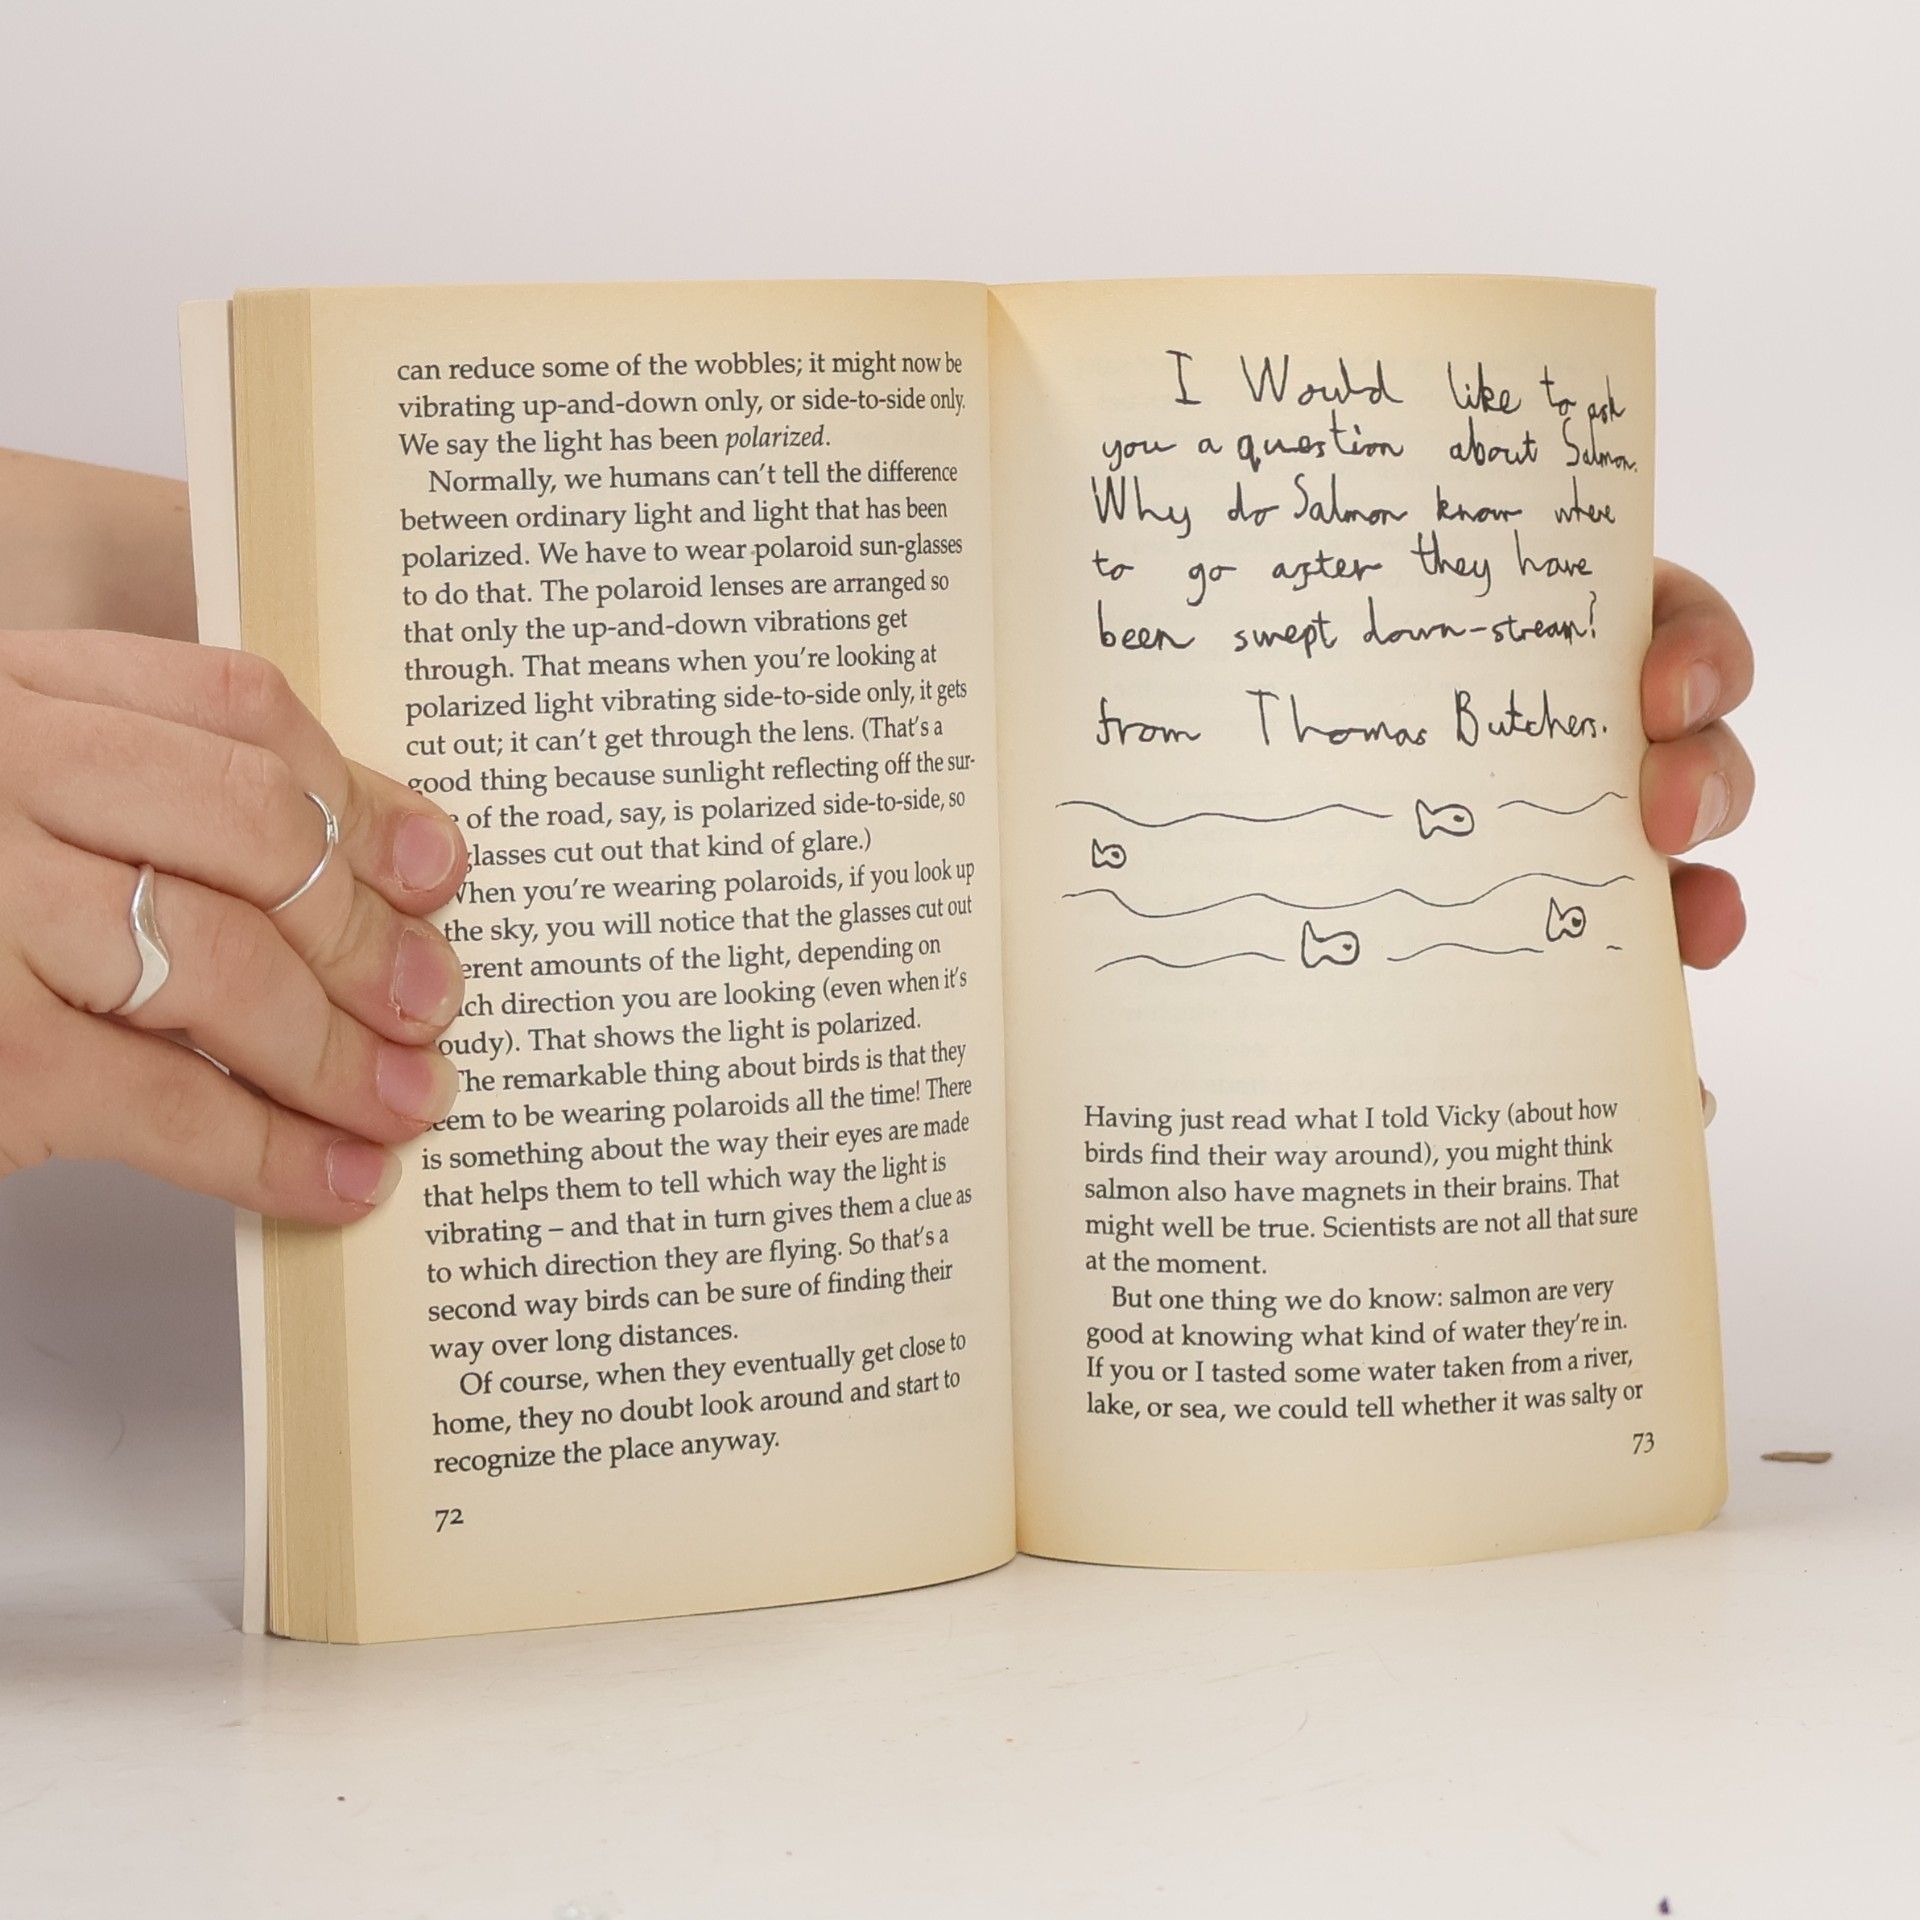 can reduce some of the wobbles; it might now be
vibrating up-and-down only, or side-to-side only.
We say the light has been polarized.
Normally, we humans can't tell the difference
between ordinary light and light that has been
polarized. We have to wear polaroid sun-glasses
to do that. The polaroid lenses are arranged so
that only the up-and-down vibrations get
through. That means when you're looking at
polarized light vibrating side-to-side only, it gets
cut out; it can't get through the lens. (That's a
good thing because sunlight reflecting off the sur-
of the road, say, is polarized side-to-side, so
glasses cut out that kind of glare.)
When you're wearing polaroids, if you look up
the sky, you will notice that the glasses cut out
erent amounts of the light, depending on
ich direction you are looking (even when it's
oudy). That shows the light is polarized.
The remarkable thing about birds is that they
eem to be wearing polaroids all the time! There
is something about the way their eyes are made
that helps them to tell which way the light is
vibrating – and that in turn gives them a clue as
to which direction they are flying. So that's a
second way birds can be sure of finding their
way over long distances.
Of course, when they eventually get close to
home, they no doubt look around and start to
recognize the place anyway.
72
I Would like to ask
you a question about Salmon.
Why do Salmon know where
to go after they have
been swept down-stream?
from Thomas Butchers.
Having just read what I told Vicky (about how
birds find their way around), you might think
salmon also have magnets in their brains. That
might well be true. Scientists are not all that sure
at the moment.
But one thing we do know: salmon are very
good at knowing what kind of water they're in.
If you or I tasted some water taken from a river,
lake, or sea, we could tell whether it was salty or
73